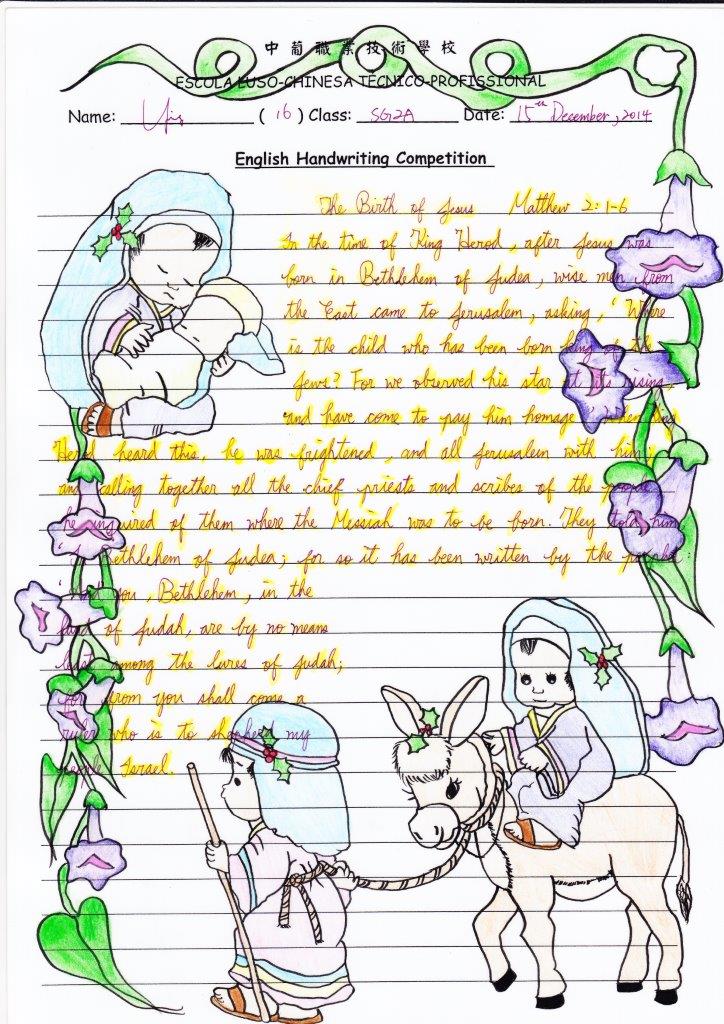 中葡職業技術學校
ESCOLA LUSO-CHINESA TÉCNICO-PROFISSIONAL
Name: ( 16 ) Class: SG2A Date: 15th December, 2014
English Handwriting Competition
The Birth of Jesus Matthew 2:1-6
In the time of King Herod, after Jesus was
born in Bethlehem of Judea, wise men from
the East came to Jerusalem, asking, "Where
is the child who has been born king of the
Jews? For we observed his star at its rising,
and have come to pay him homage." When King
Herod heard this, he was frightened, and all Jerusalem with him;
and calling together all the chief priests and scribes of the people,
he inquired of them where the Messiah was to be born. They told him
Bethlehem of Judea; for so it has been written by the prophet:
'And you, Bethlehem, in the
land of Judah, are by no means
least among the lures of Judah;
for from you shall come a
ruler who is to shepherd my
people Israel.